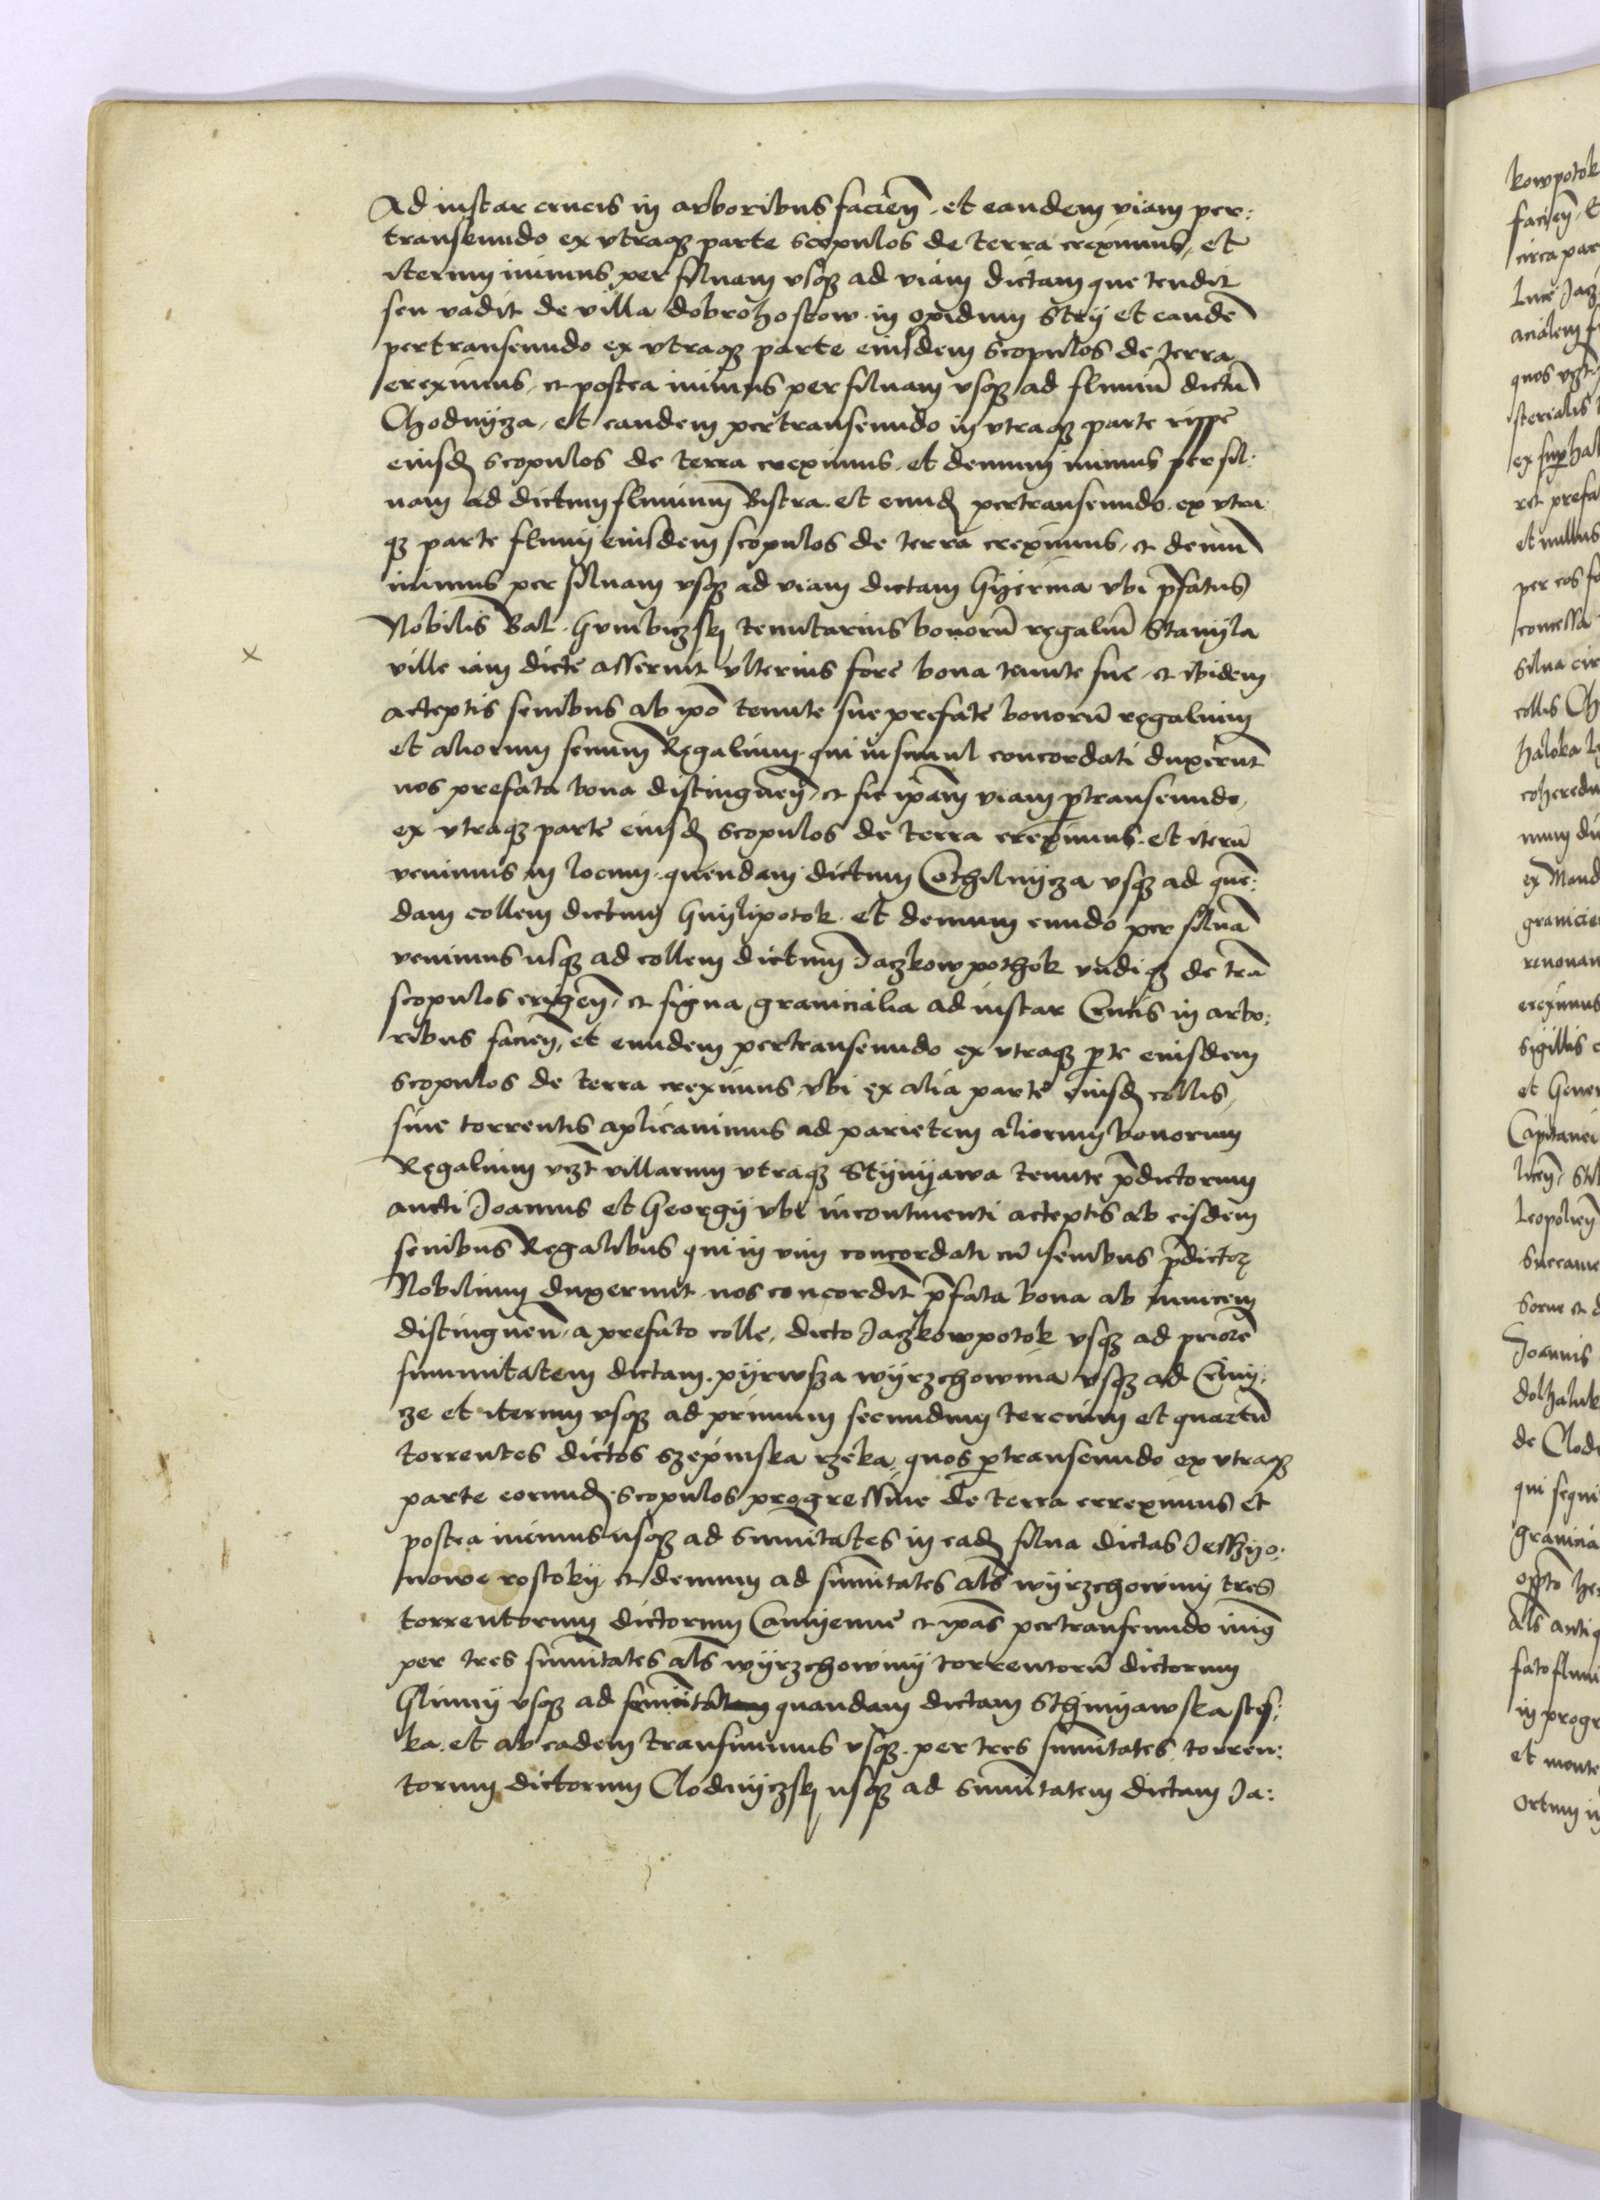 Ad instar crucis in arboribus facien̄. et eandem viam per:
transeundo ex vtraqꝫ parte scopulos de terra ereximus, et
iterum iuimus per siluam vsqꝫ ad viam dictam que tendit
seu vadit de villa dobrohostow in opidum Strij et eandē
pertranseundo ex vtraqꝫ parte eiusdem scopulos de terra
ereximus, et postea iuimus per siluam vsqꝫ ad fluuiū dictū
Chodnijcza, et eandem pertranseundo in vtraqꝫ parte rippe
eiusdꝫ scopulos de terra ereximus. et demum iuimus per sil:
uam ad dictum fluuium Bistra. et eundꝫ pertranseundo ex vtra
qꝫ parte fluuij eiusdem scopulos de terra ereximus, et demū
iuimus per siluam vsqꝫ ad viam dictam hijerma vbi p̄fatus
Nobilis Bal. tenutarius bonorū regaliū Stanijla
ville iam dicte asseruit vlterius fore bona tenute sue, et ibidem
acceptis senibus ab ip̄o tenute sue prefate bonorū regalium
et aliorum senum Regalium qui insimul concordati duxerūt
nos prefata bona distinguen̄, et sic ip̄am viam ꝑtranseundo,
ex vtraqꝫ parte eiusdꝫ scopulos de terra ereximus. et iterū
venimus in locum quendam dictum Cothilnijcza vsqꝫ ad quē:
dam collem dictum Gnijlipotok. et demum eundo per siluā
venimus usqꝫ ad collem dictum Jaczkowpothok vndiqꝫ de trā
scopulos erigen̄, et signa granicialia ad instar Crucis in arbo:
ribus facien̄, et eundem pertranseundo ex vtraqꝫ ꝑte eiusdem
scopulos de terra ereximus, vbi ex alia parte eiusdꝫ collis,
siue torrentis aplicauimus ad parietem aliorum bonorum
Regalium vꝫt villarum vtraqꝫ Stijnijawa tenute p̄dictorum
aucti Joannis et Georgij vbi incontinenti acceptis ab eisdem
senibus Regalibus qui in vim concordati cū senibus p̄dictoꝝ
Nobilium duxerunt nos concordit̄ p̄fata bona ab inuicem
distinguen̄, a prefato colle, dicto Jaczkowpotok vsqꝫ ad priorē
summitatem dictam. pijrwsza wijrzchowina vsqꝫ ad
cze et iterum vsqꝫ ad primum secundum tercium et quartū
torrentes dictos szepinska rzeka, quos ꝑtranseundo ex vtraqꝫ
parte eorundꝫ scopulos progressiue de terra erreximus et
postea iuimus usqꝫ ad sum̄itates in eadꝫ silua dictas Jesszijo:
nowe rostokij et demum ad sum̄itates al̄s wijrzchowinij tres
torrentorum dictorum Camijenne et ip̄as pertranseundo
per tres sum̄itates al̄s wijrzchowinij torrentorū dictorum
Glinnij vsqꝫ ad quandam dictam Sthinijawska
ka. et ab eadem transiuimus vsqꝫ. per tres sum̄itates torren:
torum dictorum Clodnijczskij usqꝫ ad sum̄itatem dictam Ja: